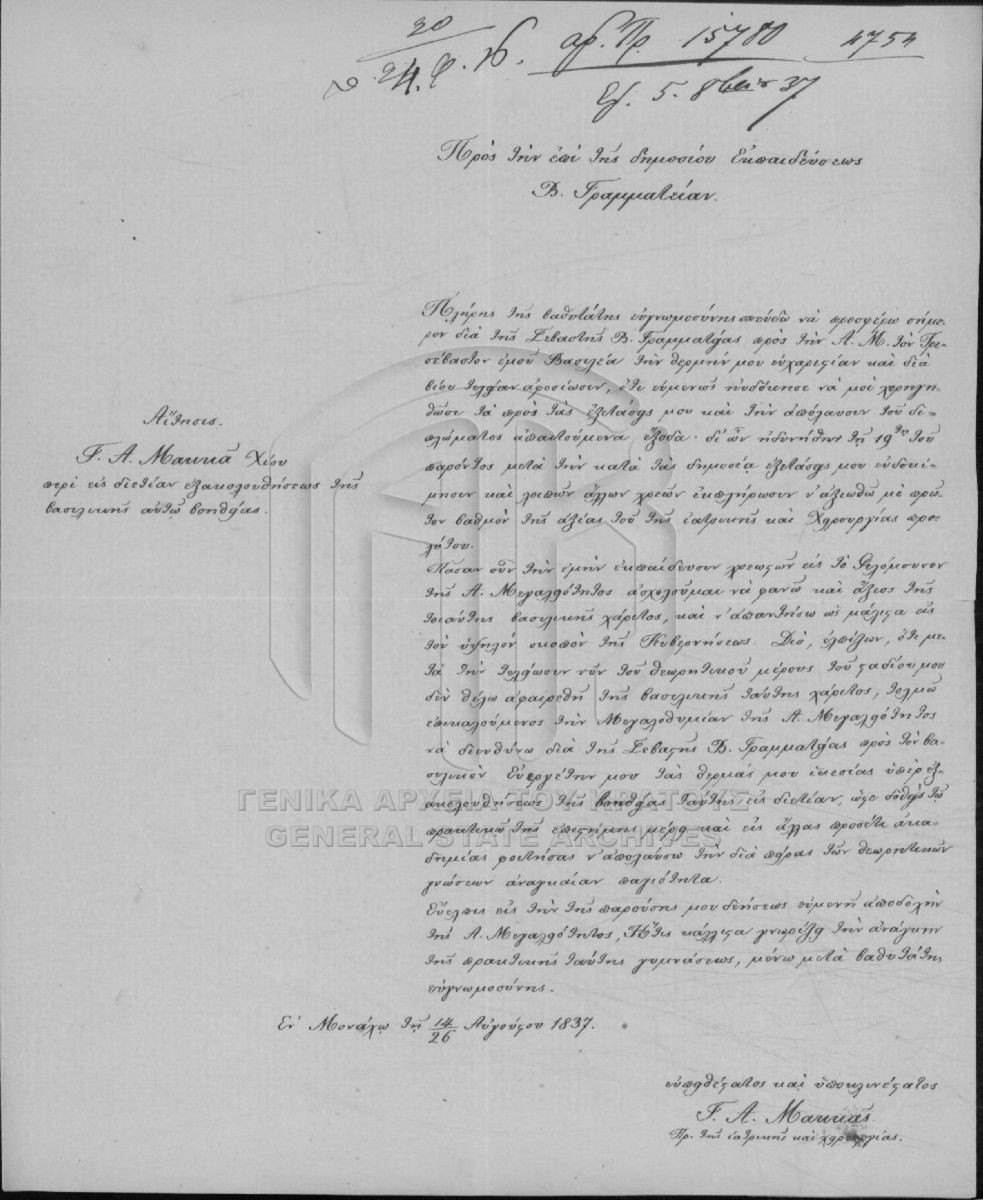 20
24. αρ. Πρ. 15780 4754
5. 8βρίου 37
Πρὸς τὴν ἐπὶ τῆς δημοσίου Ἐκπαιδεύσεως
Β. Γραμματείαν.
Αἴτησις.
Γ. Α. Μακκᾶ Χίου
περὶ εἰς διετίαν ἐξακολουθήσεως τῆς
βασιλικῆς αὐτῷ βοηθείας.
Πλήρης τῆς βαθυτάτης εὐγνωμοσύνης σπεύδω νὰ προσφέρω σήμε-
ρον διὰ τῆς Σεβαστῆς Β. Γραμματείας πρὸς τὴν Α. Μ. τὸν Τρι-
σέβαστον ἐμοῦ Βασιλέα τὴν θερμήν μου εὐχαριστίαν καὶ διὰ
βίου τελείαν ἀφοσίωσιν, ὅτι εὐμενῶς ηὐδόκησε νὰ μοὶ χορηγη-
θῶσι τὰ πρὸς τὰς ἐξετάσεις μου καὶ τὴν ἀπόλαυσιν τοῦ δι-
πλώματος ἀπαιτούμενα ἔξοδα· δι' ὧν ἠδυνήθην τῇ 19ῃ τοῦ
παρόντος μετὰ τὴν κατὰ τὰς δημοσίᾳ ἐξετάσεις μου εὐδοκί-
μησιν καὶ λοιπῶν ἄλλων χρεῶν ἐκπλήρωσιν ν' ἀξιωθῶ μὲ πρῶ-
τον βαθμὸν τῆς ἀξίας τοῦ τῆς ἰατρικῆς καὶ Χειρουργίας προ-
λύτου.
Πᾶσαν οὖν τὴν ἐμὴν ἐκπαίδευσιν χρεωστῶν εἰς τὸ Φιλόμουσον
τῆς Α. Μεγαλειότητος ἀσχολοῦμαι νὰ φανῶ καὶ ἄξιος τῆς
τοιαύτης βασιλικῆς χάριτος, καὶ ν' ἀπαντήσω ὡς μάλιστα εἰς
τὸν ὑψηλὸν σκοπὸν τῆς Κυβερνήσεως. Διὸ, ἐλπίζων, ὅτι με-
τὰ τὴν τελείωσιν νῦν τοῦ θεωρητικοῦ μέρους τοῦ σταδίου μου
δὲν θέλω ἀφαιρεθῆ τῆς βασιλικῆς ταύτης χάριτος, τολμῶ
ἐπικαλούμενος τὴν Μεγαλοθυμίαν τῆς Α. Μεγαλειότητος
νὰ διευθύνω διὰ τῆς Σεβαστῆς Β. Γραμματείας πρὸς τὸν βα-
σιλικὸν Εὐεργέτην μου τὰς θερμάς μου ἱκεσίας ὑπὲρ ἐξ-
ακολουθήσεως τῆς βοηθείας ταύτης εἰς διετίαν, ὥστε δοθεὶς τῷ
πρακτικῷ τῆς ἐπιστήμης μέρει καὶ εἰς ἄλλας προσέτι ἀκα-
δημίας φοιτήσας ν' ἀπολαύσω τὴν διὰ πείρας τῶν θεωρητικῶν
γνώσεων ἀναγκαίαν παγιότητα.
Εὔελπις εἰς τὴν τῆς παρούσης μου δεήσεως εὐμενῆ ἀποδοχὴν
τῆς Α. Μεγαλειότητος, Ἥτις κάλλιστα γνωρίζει τὴν ἀνάγκην
τῆς πρακτικῆς ταύτης γυμνάσεως, μένω μετὰ βαθυτάτης
εὐγνωμοσύνης.
Ἐν Μονάχῳ τῇ 14/26 Αὐγούστου 1837.
εὐπειθέστατος καὶ ὑποκλινέστατος
Γ. Α. Μακκᾶς.
Πρ. τῆς ἰατρικῆς καὶ χειρουργίας.
ΓΕΝΙΚΑ ΑΡΧΕΙΑ ΤΟΥ ΚΡΑΤΟΥΣ
GENERAL STATE ARCHIVES